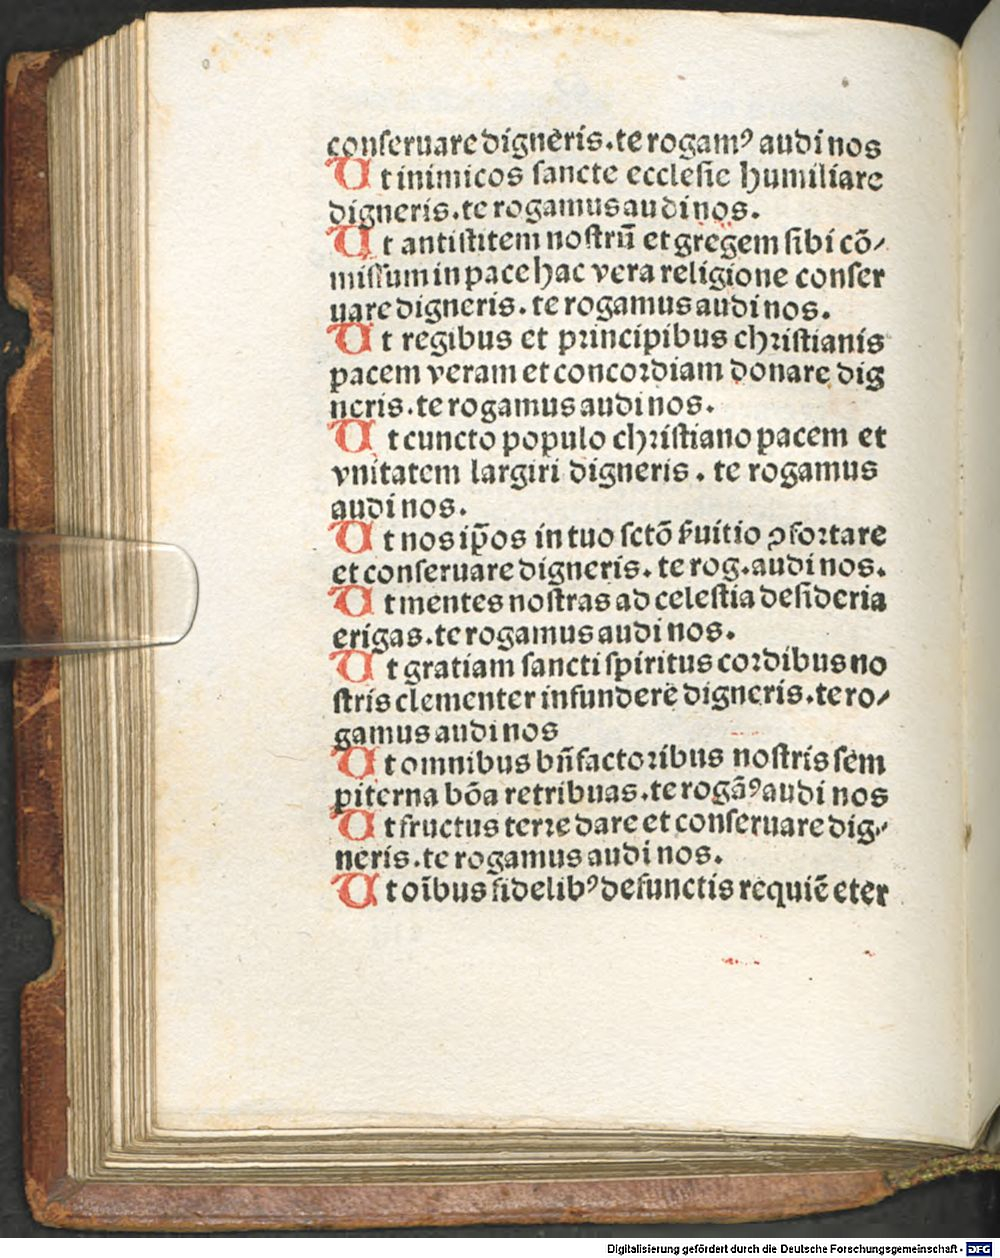 conſeruare digneris.te rogamꝰ audi nos
Ut inimicos ſancte eccleſie humiliare
digneris.te rogamus audi nos.
Ut antiſtitem noſtrū et gregem ſibi cō⸗
miſſum in pace hac vera religione conſer
uare digneris. te rogamus audi nos.
Ut regibus et principibus chriſtianis
pacem veram et concordiam donare dig
neris.te rogamus audi nos.
Ut cuncto populo chriſtiano pacem et
vnitatem largiri digneris. te rogamus
audi nos.
Ut nos ip̄os in tuo ſctō ſ̄uitio ꝯfortare
et conſeruare digneris. te rog. audi nos.
Ut mentes noſtras ad celeſtia deſideria
erigas.te rogamus audi nos.
Ut gratiam ſancti ſpiritus cordibus no
ſtris clementer infundere digneris.te ro⸗
gamus audi nos
Ut omnibus bn̄factoribus noſtris ſem
piterna bōa retribuas.te rogāꝰ audi nos
Ut fructus terre dare et conſeruare dig⸗
neris.te rogamus audi nos.
Ut oībus fidelibꝰ defunctis requiē eter
Digitalisierung gefördert durch die Deutsche Forschungsgemeinschaft - DFG